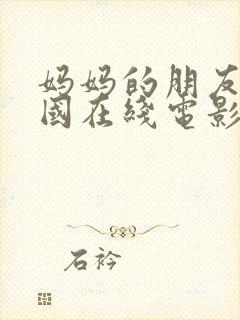 妈妈的朋友
國在綫電影
石衿